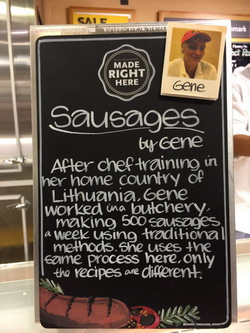 SALE
MADE
RIGHT
HERE
Gene
Sausages
by GENE
After chef training in
her home country of
Lithuania, Gene
worked in a butchery,
making 500 sausages
a week using traditional
methods. She uses the
same process here, only
the recipes are different.